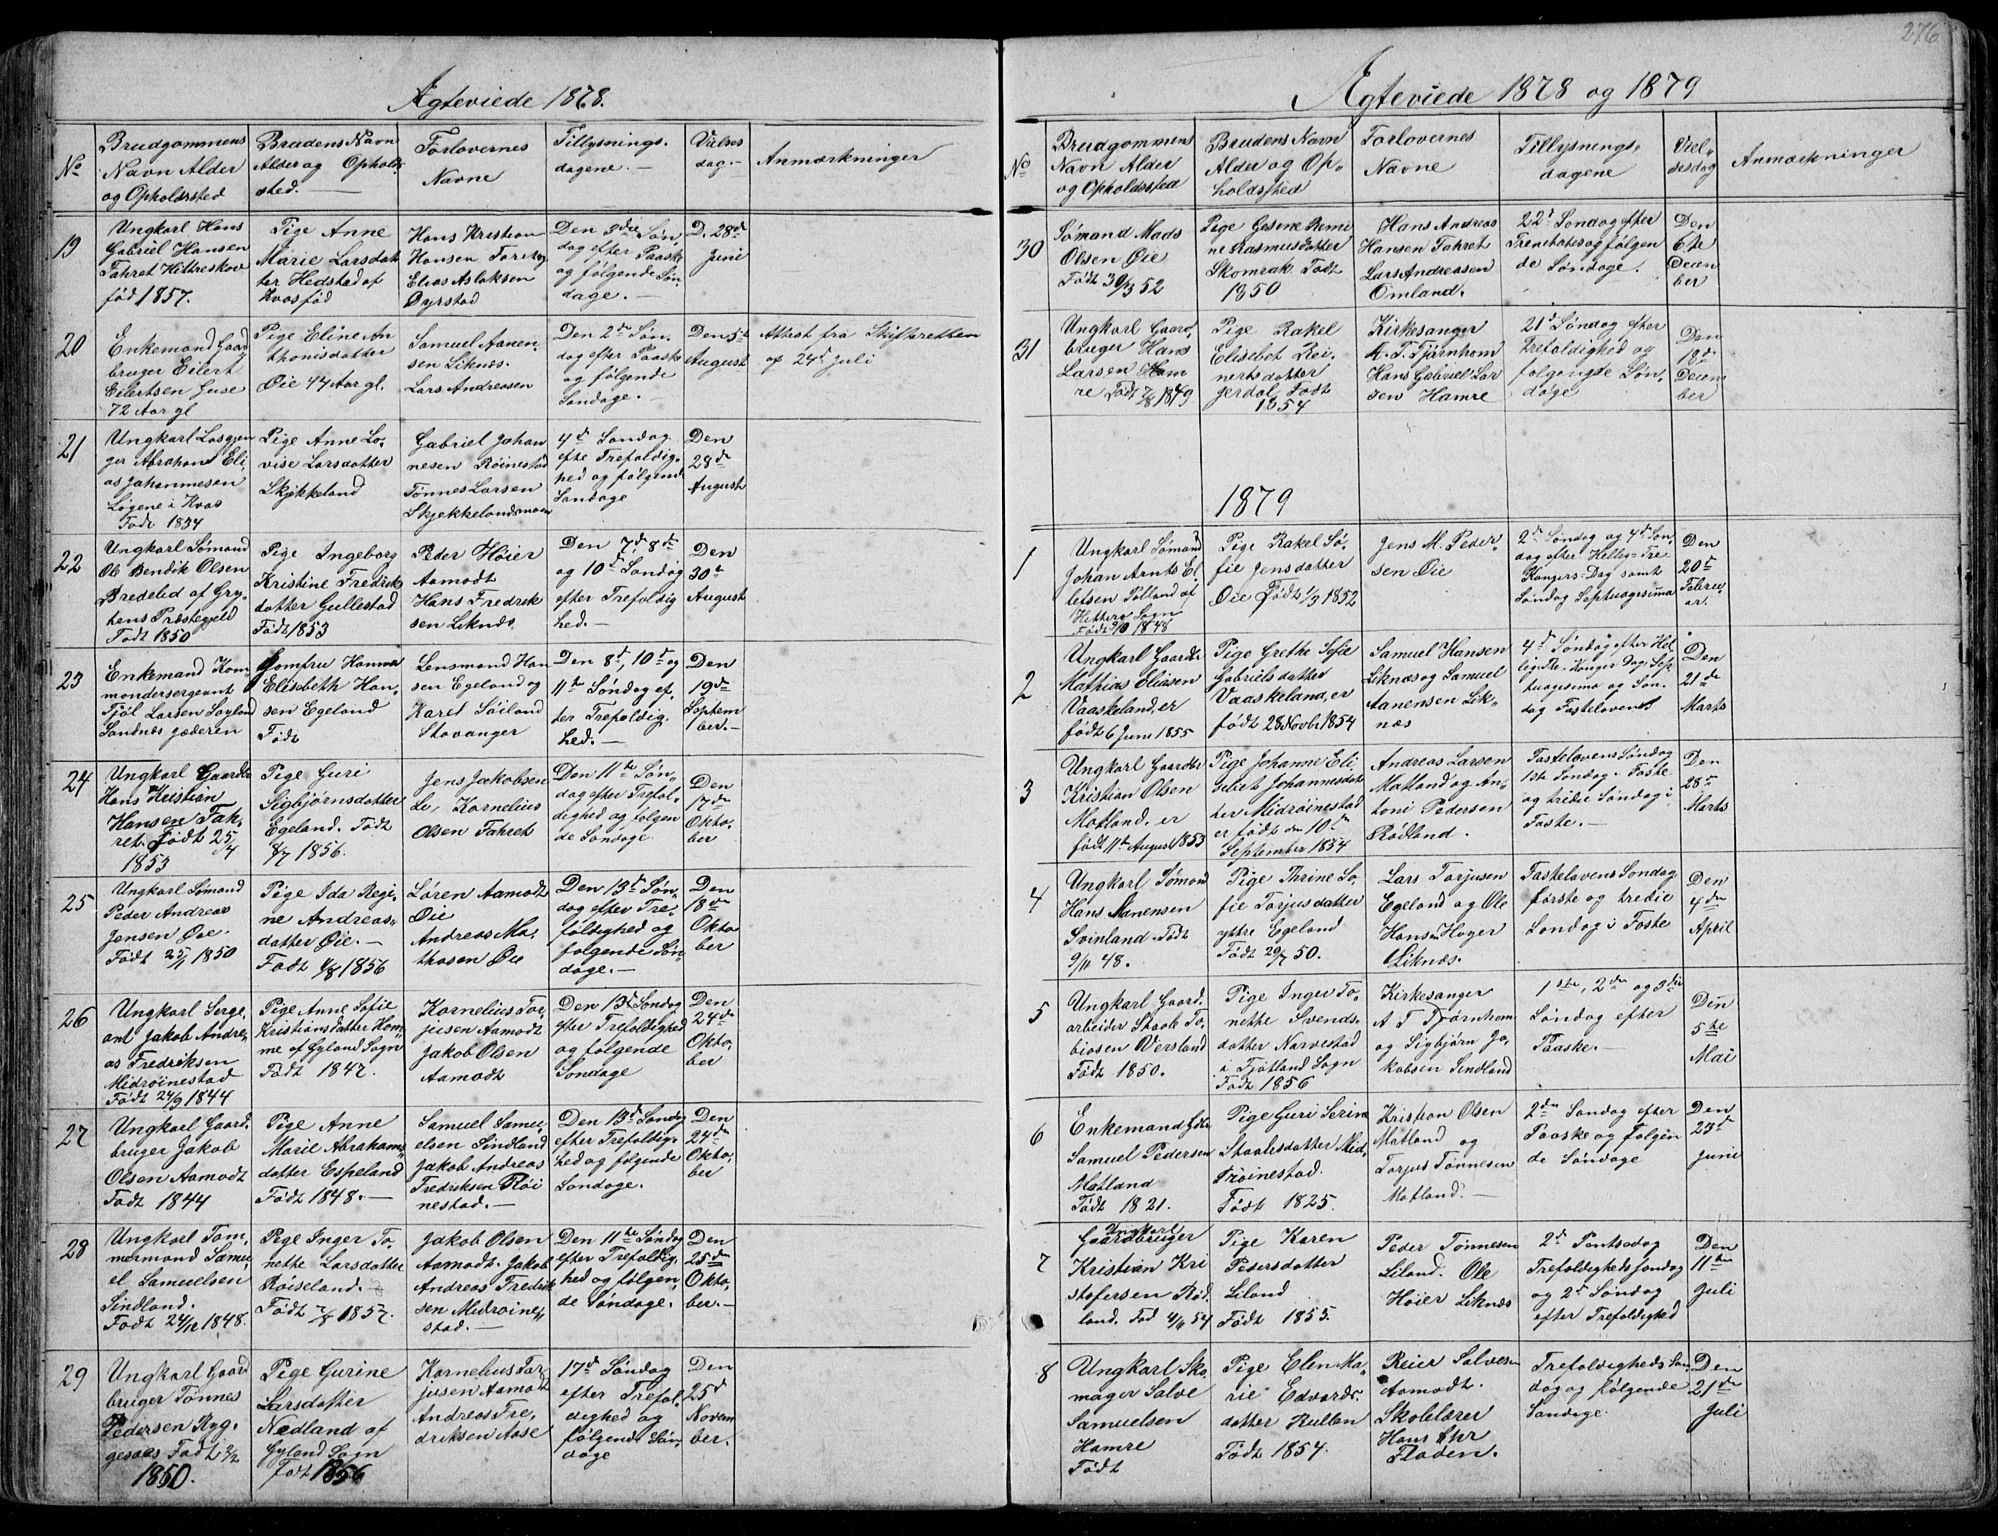 Ægteviede 1878.
No
Brudgommens
Navn Alder
og Opholdssted
Brudens Navn
Alder og Opholds
sted.
Forlovernes
Navne
Tillysnings-
dagene. —
Vielses
dag. —
Anmærkninger
19
Ungkarl Hans
Gabriel Hansen
Fahret Hitteskov
fød 1857.
Pige Anne
Marie Larsdat
ter Hedstad af
Kvasfjød
Hans Kristian
Hansen Faret og
Elias Aslaksen
Dyrstad
Den 3die Søn,
dag efter Paaske
og følgende Søn,
dage. —
D. 28de
Juni
20
Enkemand Gaard
bruger Eilert
Eilertsen Guse
72 Aar gl
Pige Eline An
thonisdatter
Øie 44 Aar gl.
Samuel Aanen,
sen Liknes.
Lars Andreasen
Den 2den Søn,
dag efter Paaske
og følgende
Søndage. —
Den 5te
August
Attest fra Skifteretten
af 24de Juli
21
Ungkarl Losgjen
ger Abraham Eli,
as Johannesen
Løgene i Kvas
Født 1834
Pige Anne Lo,
vise Larsdatter
Skjekkeland
Gabriel Johan
nesen Røinestad
Tønnes Larsen
Skjekkelandsmoen
4de Søndag
efte Trefoldig,
hed og følgende
Søndage
Den
28de
August
22
Ungkarl Sømand
Ole Bendik Olsen
Bredelid af Gry,
tens Præstegjeld
Født 1850
Pige Ingeborg
Kristine Fredriks
datter Gullestad
Født 1853
Peder Høier
Aamodt
Hans Fredrik
sen Liknes.
Den 7de 8de
og 10de Søndag
efter Trefoldig
hed. —
Den
30te
August
23
Enkemand Kom,
mandersergeant
Fjøl Larsen Soyland
Sandnes Jæderen
Jomfru Hanna
Elisabeth Han,
sen Egeland
Født
Lensmand Han
sen Egeland og
Karel Søiland
Stavanger
Den 8de, 10de og
11te Søndag ef,
ter Trefoldig,
hed. —
Den
19de
Septem
ber. —
24
Ungkarl Gaardbr
Hans Kristian
Hansen Fah,
ret. Født 25/4
1853
Pige Guri
Sigbjørnsdatter
Egeland. Født
8/7 1856.
Jens Jakobsen
Li, Kornelius
Olsen Fahret
Den 11te Søn,
dag efter Trefol,
dighed og følgen
de Søndage
Den
17de
Okto,
ber
25
Ungkarl Sømand
Peder Andreas
Jensen Øie.
Født 25/1 1850
Pige Ida Regi,
ne Andreas,
datter Øie. —
Født 1/8 1856
Søren Aamodt
Øie
Andreas Ma,
thesen Øie
Den 13de Søn,
dag efter Tre,
foldighed og
følgende Søn,
dage. —
Den
18de
Okto
ber
26
Ungkarl Serge,
ant Jakob Andre,
as Fredriksen
Midrøinestad
Født 24/9 1844
Pige Anne Sofie
Kristiansdatter Hom,
me af Gyland Sogn
Født 1847.
Kornelius Tor,
jusen Aamodt
Jakob Olsen
Aamodt
Den 13de Søndag
efter Trefoldighed
og følgende
Søndage
Den
24de
Okto,
ber
27
Ungkarl Gaard,
bruger Jakob
Olsen Aamodt
Født 1844
Pige Anne
Marie Abrahams,
datter Espeland
Født 1848. —
Samuel Samu,
elsen Sindland
Jakob Andreas
Fredriksen Røi
nestad. —
Den 13de Søndag
efter Trefoldig,
hed og følgende
Søndage.
Den
24de
Okto,
ber
28
Ungkarl Tøm,
mermand Samu,
el Samuelsen
Sindland.
Født 24/12 1848.
Pige Inger To,
nette Larsdatter
Røiseland.
Født 7/8 1857.
Jakob Olsen
Aamodt. Jakob
Andreas Fredrik
sen Midrøine,,
stad. —
Den 11te Søndag
efter Trefoldig,
hed og følgen,
de Søndage.
Den
25de
Okto,
ber. —
29
Ungkarl Gaard
bruger Tønnes
Pedersen Ryg,
gesaas Født 2/2
1850.
Pige Gurine
Larsdatter
Nedland af
Gyland Sogn
Født 1856
Kornelius Tor,
jusen Aamodt
Andreas Fre,
driksen Aase
17de Søndag
efter Trefol,
dighed og
følgende Søn,
dage
Den
25de
Novem
ber.
276
Ægteviede 1878 og 1879
No
Brudgommens
Navn Alder
og Opholdssted
Brudens Navn
Alder og Op,
holdsted
Forlovernes
Navne
Tillysnings,
dagene
Viel,
sesdag
Anmærkninger
30
Sømand Mads
Olsen Øie
Født 30/3 52
Pige Gesine Remi
ne Rasmusdatter
Skomrak Født
1850
Hans Andreas
Hansen Fahret
Lars Andreasen
Omland.
22de Søndag efter
Trenitatis og følgen
de Søndage.
Den
6te
Decem
ber
31
Ungkarl Gaard,
bruger Hans
Larsen Ham
re Født 7/8 1849
Pige Rakel
Elisebet Rei,
nertsdatter
gerdal Født
1854
Kirkesanger
A. T. Tjørnhom
Hans Gabriel Lar
sen Hamre
21de Søndag efter
Trefoldighed og
følgende Søn,
dage
Den
18de
Decem
ber
1879
1
Ungkarl Sømand
Johan Arnt El
lefsen Rølland af
Hitterø Sogn
Født 9/10 1848
Pige Rakel So,
fie Jensdatter
Øie Født 1/3 1852
Jens M. Peder,
sen Øie
2de Søndag og 4de Søn,
dag efter Hellig-Tre
Kongers-Dag samt
Søndag Septuagesima
Den
20de
Febru,
ar.
2
Ungkarl Gaardbr
Mathias Eliasen
Vaaskeland, er
født 6 Juni 1855
Pige Grethe Sofie
Gabrielsdatter
Vaaskeland, er
født 28 Novbr 1854
Samuel Hansen
Liknæs og Samuel
Aanensen Lik,
næs
4de Søndag efter Hel
lig Tre Konger Dag Sep
tuagesima og Søn,
dag Fastelavens
Den
21de
Marts
3
Ungkarl Gaardbr
Kristian Olsen
Matland er
født 11te August 1853
Pige Johanne Eli
sebet Johannesdat
ter Midrøinestad
er født den 10de
September 1854
Andreas Larsen
Matland og An,
toni Pedersen
Rødland.
Fastelavens Søndag
1ste Søndag i Faste
og tredie Søndag i
Faste. —
Den
28de
Marts
4
Ungkarl Sømand
Hans Aanensen
Svinland. Født
9/11 48.
Pige Thrine So,
fie Torjusdatter
yttre Egeland
Født 29/7 50.
Lars Torjusen
Egeland og Ole
Hansen Høyer
Liknæs.
Fastelavens Søndag
første og tredie
Søndag i Faste
Den
4de
April
5
Ungkarl Gaard,
arbeider Staale To,
biasen Versland
Født 1850.
Pige Inger To,
nette Svends,
datter Narvestad
i Fjotland Sogn
Født 1856
Kirkesanger
A T Tjørnhom
og Sigbjørn Ja,
kobsen Sindland
1ste, 2den og 3die
Søndag efter
Paaske. —
Den
5te
Mai
6
Enkemand Gdbr
Samuel Pedersen
Matland
Født 1821.
Pige Guri Serine
Staalesdatter Mid,
røinestad.
Født 1825.
Kristian Olsen
Matland og
Torjus Tønnesen
Matland. —
2den Søndag efter
Paaske og følgen
de Søndage
Den
23de
Juni
7
Ungkarl
Gaardbruger
Kristian Kri
stofersen Rød,
land. Fød 4/11 54
Pige Karen
Pedersdatter
Liland
Født 1855.
Peder Tønnesen
Liland. Ole
Høier Liknæs
2de Pintsedag
Trefoldigheds Søndag
og 2de Søndag
efter Trefoldighed
Den
11te
Juli
8
Ungkarl Sko,
mager Salve
Samuelsen
Hamre
Født
Pige Elen Ma,
rie Edvards,
datter Kullen
Født 1854.
Reier Salvesen
Aamodt.
Skolelærer
Hans Chr
Floden.
Trefoldigheds Søn
dag og følgende
Søndage
Den
21de
Juli